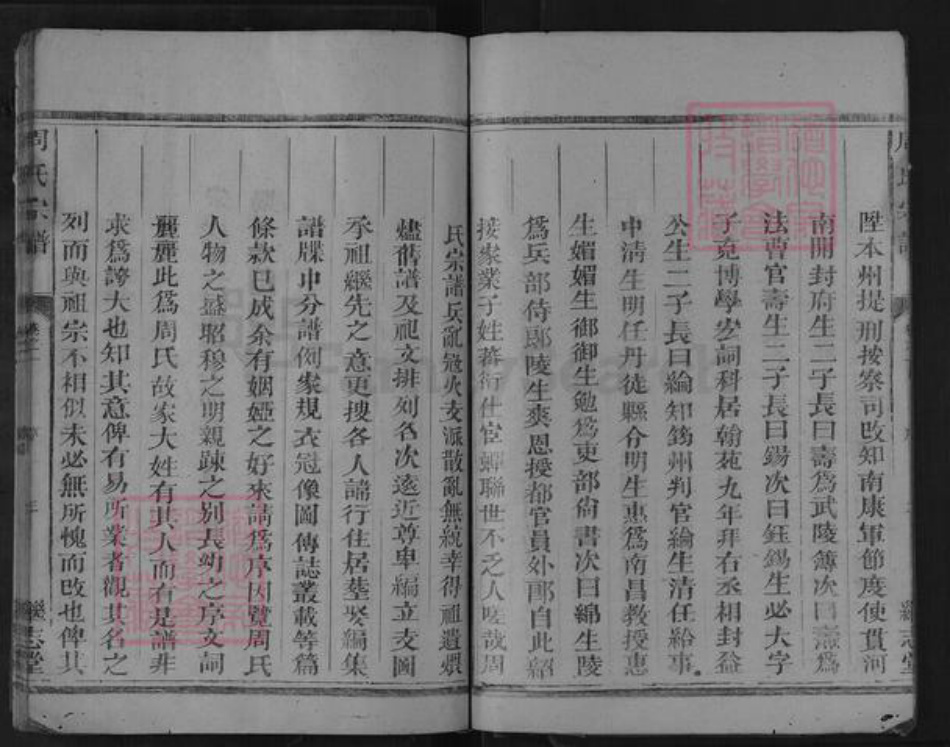 陞本州提刑按察司改知南康軍節度使貫河
南開封府生二子長曰壽為武陵簿次曰燾為
法曹官壽生二子長曰鍚次曰鈺鍚生必大字
子克博學宏詞科居翰苑九年拜右丞相封益
公生二子長曰綸知筠州判官綸生清任給事
中清生明任丹徒縣令明生惠為南昌教授惠
生媚媚生御御生勉為吏部尚書次曰綿生陵
為兵部侍郎陵生爽恩授都官員外郎自此紹
接家業子姓蕃衍仕宦蟬聯世不乏人嗟哉周
氏宗譜兵亂寇火支派散亂無統幸得祖遺煨
燼舊譜及祀文排列名次遠近尊卑編立支圖
承祖繼先之意更搜各人諱行住居塟娶編集
譜牒中分譜例家規衣冠像圖傳誌叢載等篇
條款已成余有姻婭之好來請為序因覽周氏
人物之盛昭穆之明親踈之別長幼之序文詞
麗麗此為周氏故家大姓有其人而有是譜非
求為誇大也知其意俾有易所業者觀其名之
列而與祖宗不相似未必無所愧而改也俾其
周氏宗譜
繼志堂